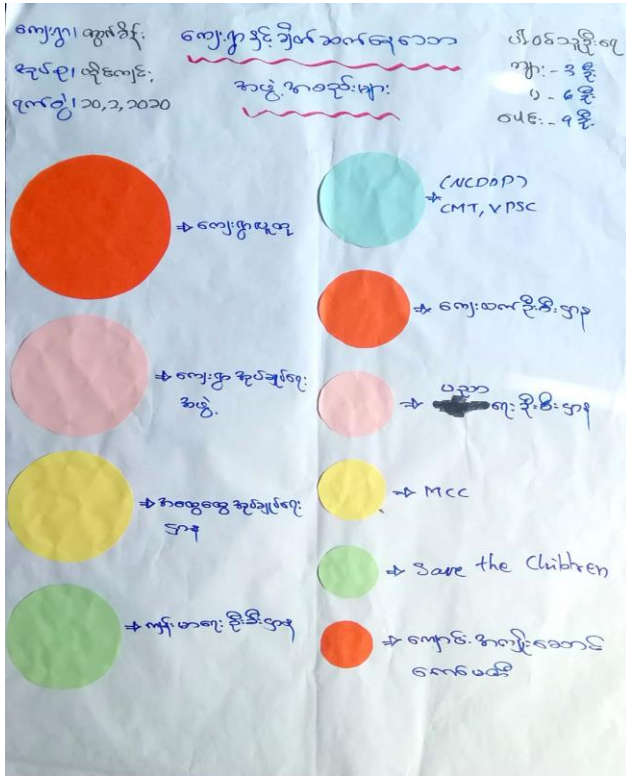 ကျေးရွာ၊ ထွက်စိန်း
အုပ်စု၊ ထိုင်ကျင်း
ရက်စွဲ၊ ၁၀,၂,၂၀၂၀
ကျေးရွာနှင့် ချိတ်ဆက်နေသော
အဖွဲ့အစည်းများ
ပါဝင်သူဦးရေ
ကျား - ၃ ဦး
မ - ၆ ဦး
ပေါင်း - ၉ ဦး
ကျေးရွာလူထု
ကျေးရွာ အုပ်ချုပ်ရေး
အဖွဲ့
အထွေထွေ အုပ်ချုပ်ရေး
ဌာန
ကျန်းမာရေး ဦးစီးဌာန
(NCDDP)
CMT, VPSC
ကျေးလက်ဦးစီးဌာန
ပညာ
ရေး ဦးစီးဌာန
MCC
Save the Children
ကျောင်းအကျိုးဆောင်
ကော်မတီ